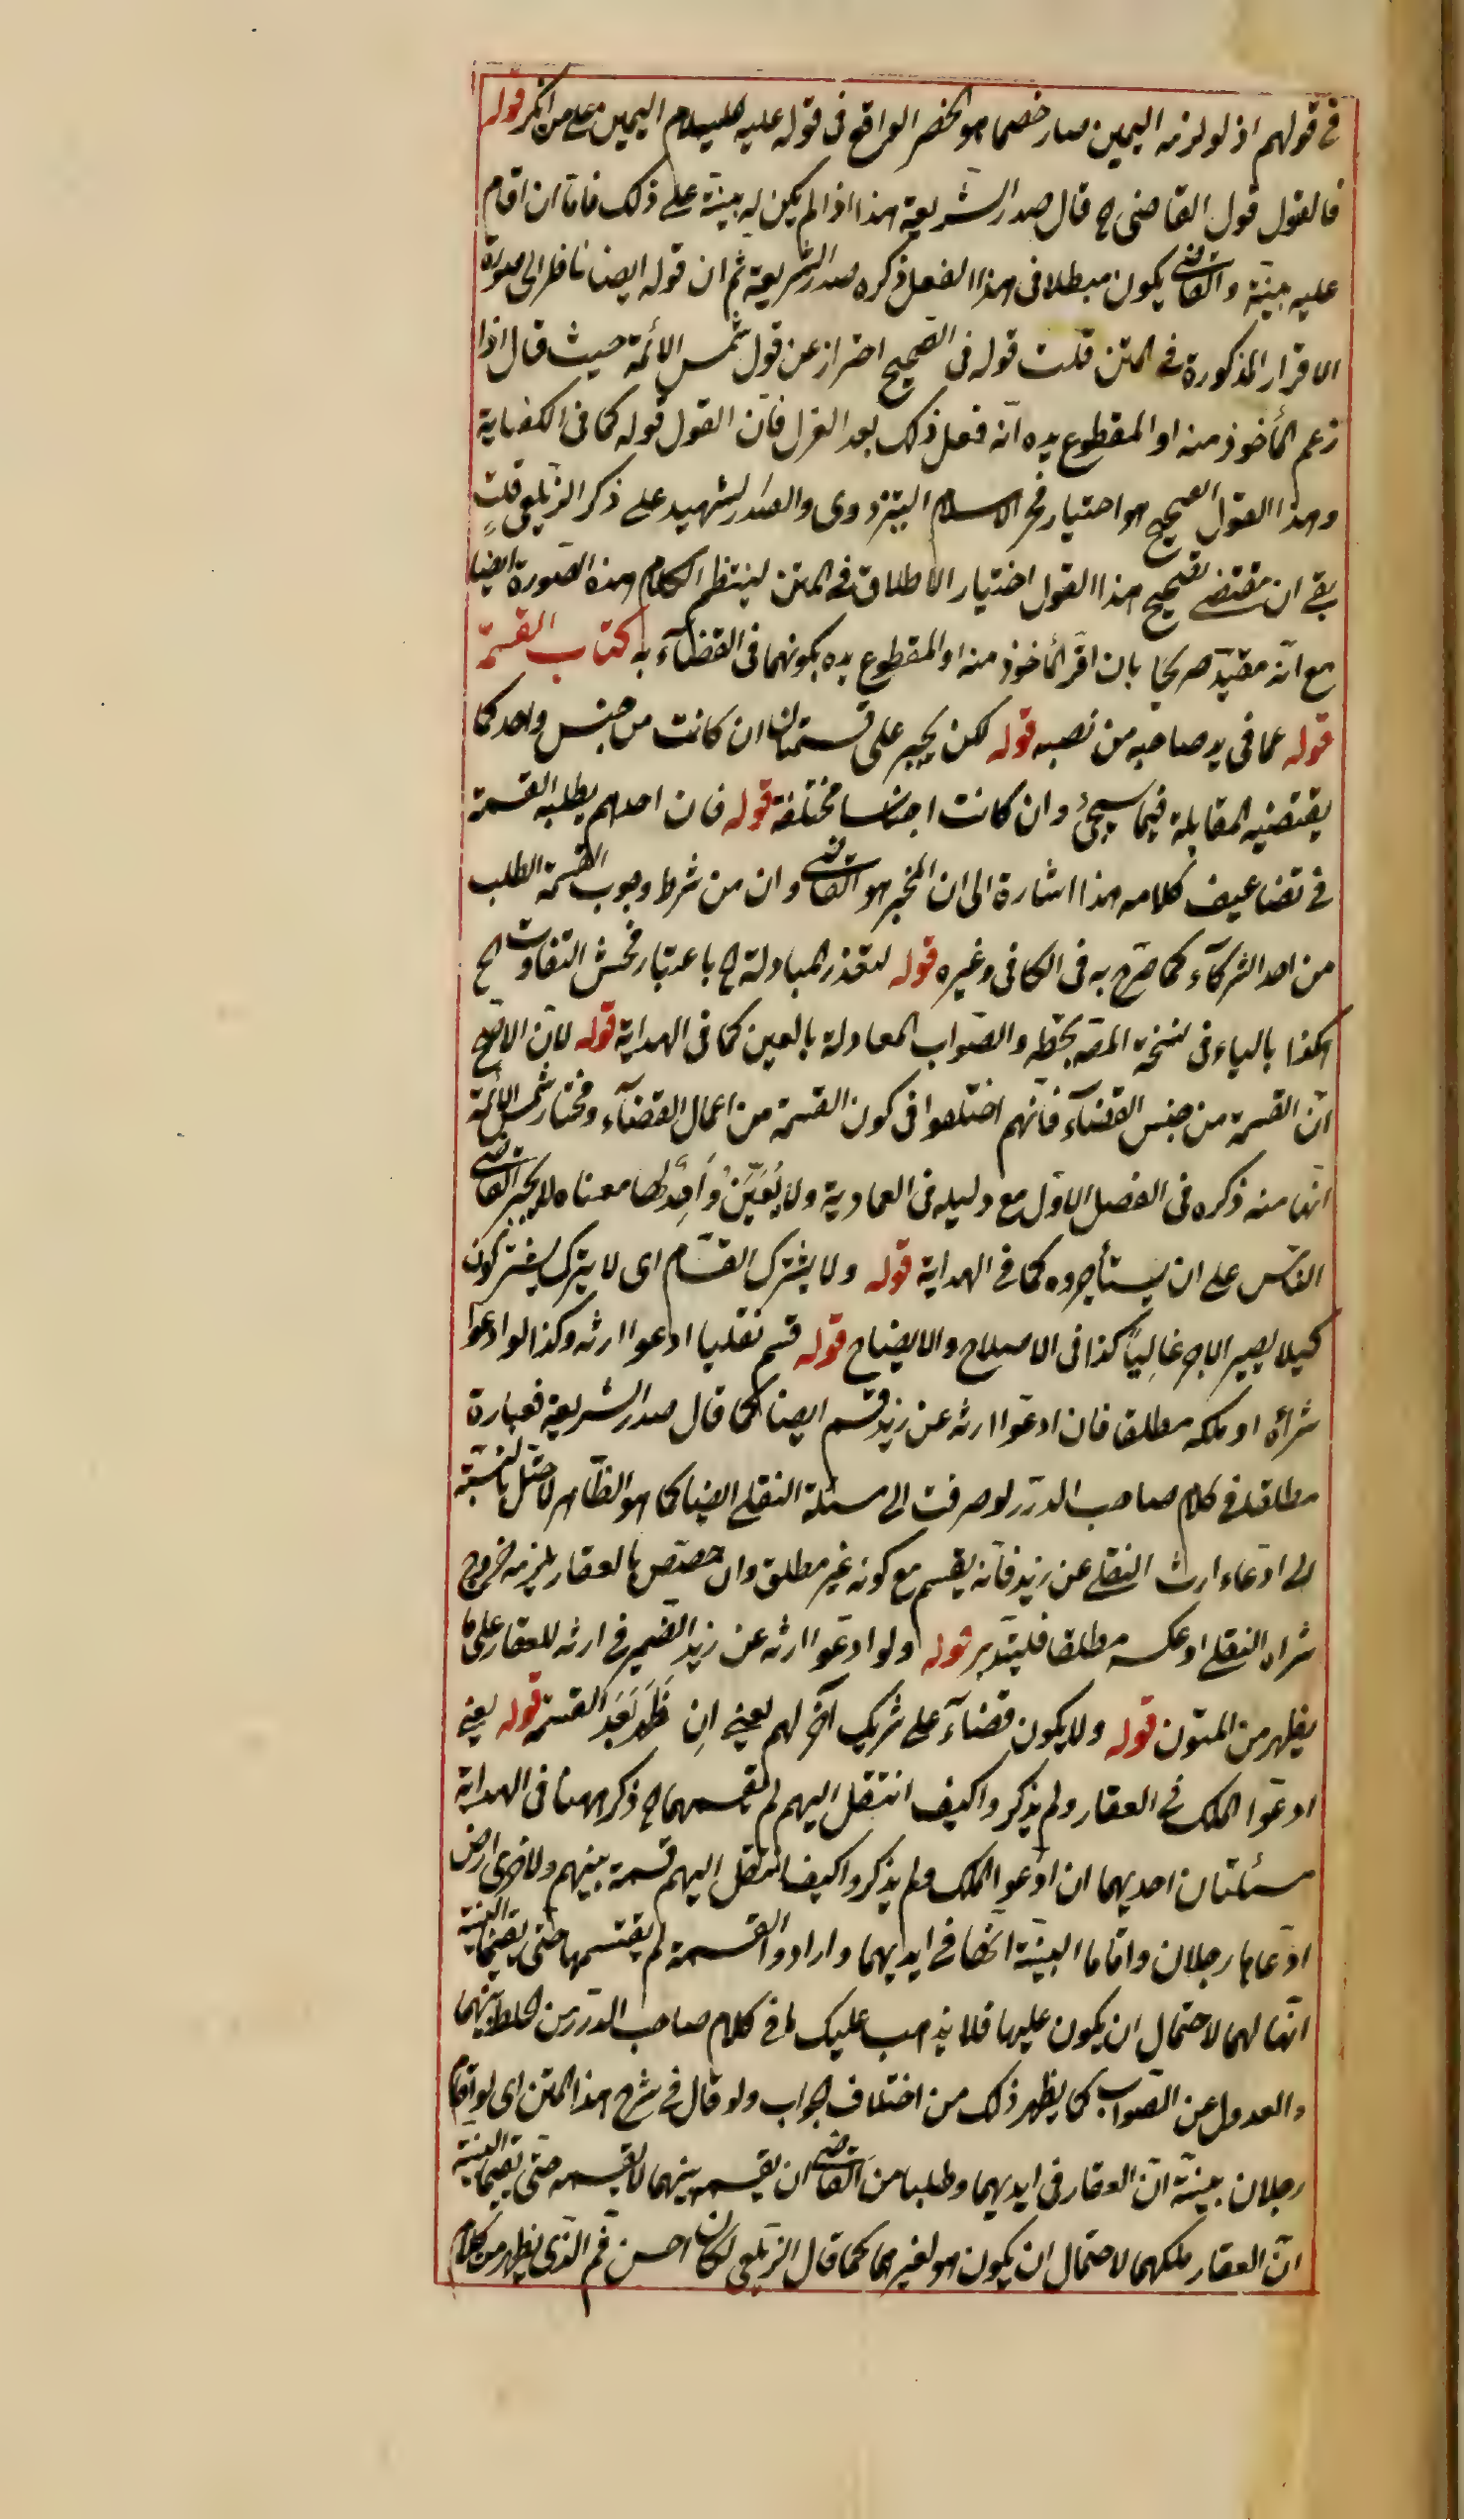 في قولهم اذ لو لزمه اليمين صار خصما هو الحصر الواقع في قوله عليه السلام اليمين على من انكر قوله
فالقول قول القاضي ح قال صدر الشريعة هذا اذا لم يكن له بينة على ذلك فاما ان اقام
عليه بينة والقاضي يكون مبطلا في هذا الفعل ذكره صدر الشريعة ثم ان قوله ايضا ناظر الى صورة
الاقرار المذكورة في المتن قلت قوله في الصحيح احتراز عن قول شمس الائمة حيث قال اذا
زعم المأخوذ منه او المقطوع يده انه فعل ذلك بعد العزل فان القول قوله كما في الكفاية
وهذا القول الصحيح هو اختيار فخر الاسلام البزدوي والصدر الشهيد على ذكر الزيلعي قلت
بقي ان مقتضى تصحيح هذا القول اختيار الاطلاق في المتن لينتظم الكلام هذه الصورة ايضا
مع انه مقيد صريحا بان اقر المأخوذ منه او المقطوع يده بكونهما في القضاء به كتاب القسمة
قوله عما في يد صاحبه من نصبه قوله لكن يجبر على قسمتها ان كانت من جنس واحد كما
يقتضيه المقابلة فيما سيجئ وان كانت اجناسا مختلفة قوله فان احدهم يطلبه القسمة
في تضاعيف كلامه هذا اشارة الى ان المخبر هو القاضي وان من شرط وجوب القسمة الطلب
من احد الشركاء كما صرح به في الكافي وغيره قوله لتعذر المبادلة ح باعتبار فحش التفاوت الخ
هكذا بالياء في نسخة المصه بخطه والصواب المعادلة بالعين كما في الهداية قوله لان الاصح
ان القسمة من جنس القضاء فانهم اختلفوا في كون القسمة من اعمال القضاء ومختار شمس الائمة
انها منه ذكره في الفصل الاول مع دليله في العمادية ولا يعين واحد لها معناه لا يجبر القاضي
الناس على ان يستأجروه كما في الهداية قوله ولا يشترك القسام اى لا يترك يشتركون
كيلا يصير الاجر غاليا كذا في الاصلاح والايضاح قوله قسم نقليا ادعوا ارثه وكذا لو ادعوا
شراؤه او ملكه مطلقا فان ادعوا ارثه عن زيد قسم ايضا كما قال صدر الشريعة فعبارة
مطلقا في كلام صاحب الدرر لو صرفت الى مسئلة النقلي ايضا كما هو الظاهر لاختل بالنسبة
الى ادعاء ارث النقلي عن زيد فانه يقسم مع كونه غير مطلق وان خصص بالعقار يلزمه خروج
شراء النقلي او عكسه مطلقا فليتدبر قوله ولو ادعوا ارثه عن زيد الضمير في ارثه للعقار على ما
يظهر من المتون قوله ولا يكون قضاء على شريك آخر لهم يعني ان ظهر بعد القسمة قوله يعني
ادعوا الملك في العقار ولم يذكروا كيف انتقل اليهم لم يقسمها ح ذكر ههنا في الهداية
مسئلتان احديهما ان ادعوا الملك ولم يذكروا كيف انتقل اليهم قسمه بينهم والاخرى ارض
ادعاها رجلان واقاما البينة انها في ايديهما وارادوا القسمة لم يقتسمها حتى يقيما البينة
انها لهما لاحتمال ان يكون عليها فلا يذهب عليك ما في كلام صاحب الدرر من الخلط بينهما
والعدول عن الصواب كما يظهر ذلك من اختلاف الجواب ولو قال في شرح هذا المتن اى لو اقام
رجلان بينة ان العقار في ايديهما وطلبا من القاضي ان يقسم بينهما لا يقسمه حتى يقيما البينة
ان العقار ملكهما لاحتمال ان يكون هو لغيرهما كما قال الزيلعي لكان احسن ثم الذي يظهر من كلام